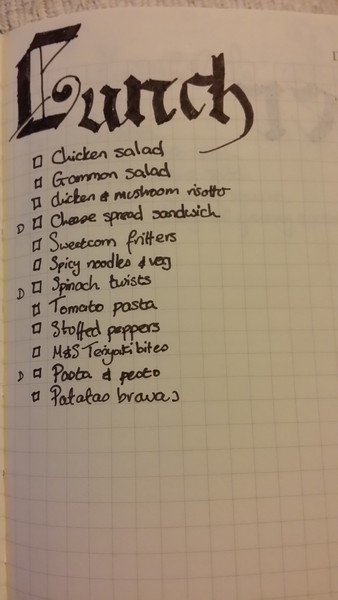 Lunch
Chicken salad
Gammon salad
Chicken & mushroom risotto
D Cheese spread sandwich
Sweetcorn fritters
Spicy noodles & veg
D Spinach twists
Tomato pasta
Stuffed peppers
M&S Teriyaki bites
D Pasta & pesto
Patatas bravas